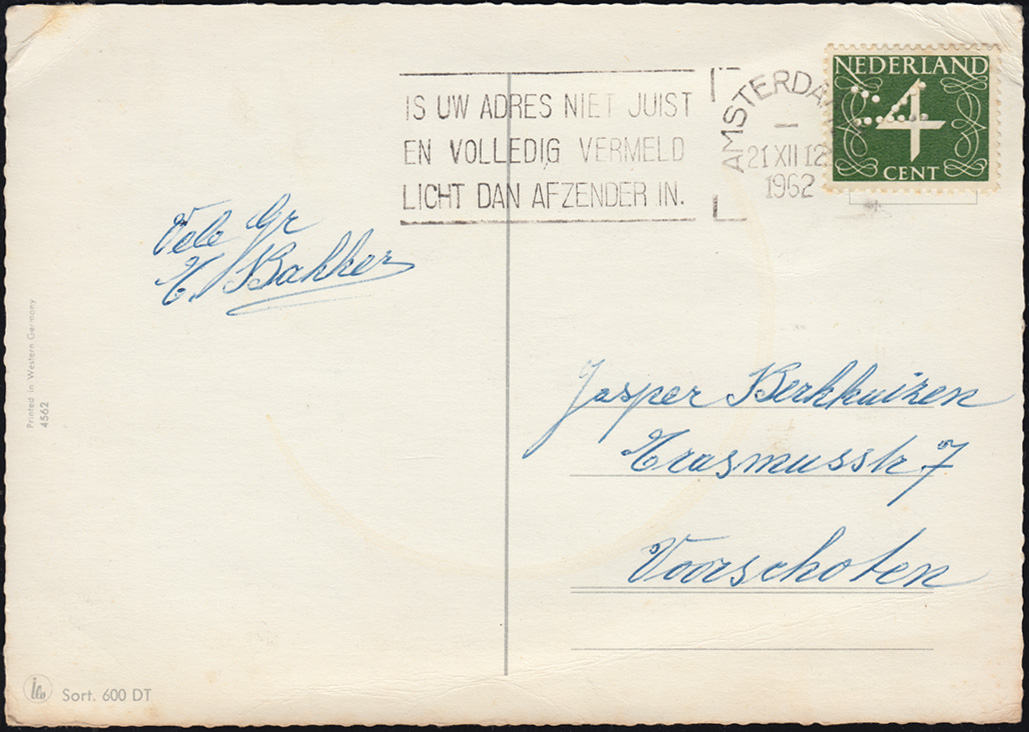 IS UW ADRES NIET JUIST
EN VOLLEDIG VERMELD
LICHT DAN AFZENDER IN.
AMSTERDAM
21 XII 12
1962
NEDERLAND
4
CENT
Vele Gr
H. Bakker
Jasper Berkhuizen
Erasmusstr 7
Voorschoten
Printed in Western Germany
4562
ilo
Sort. 600 DT